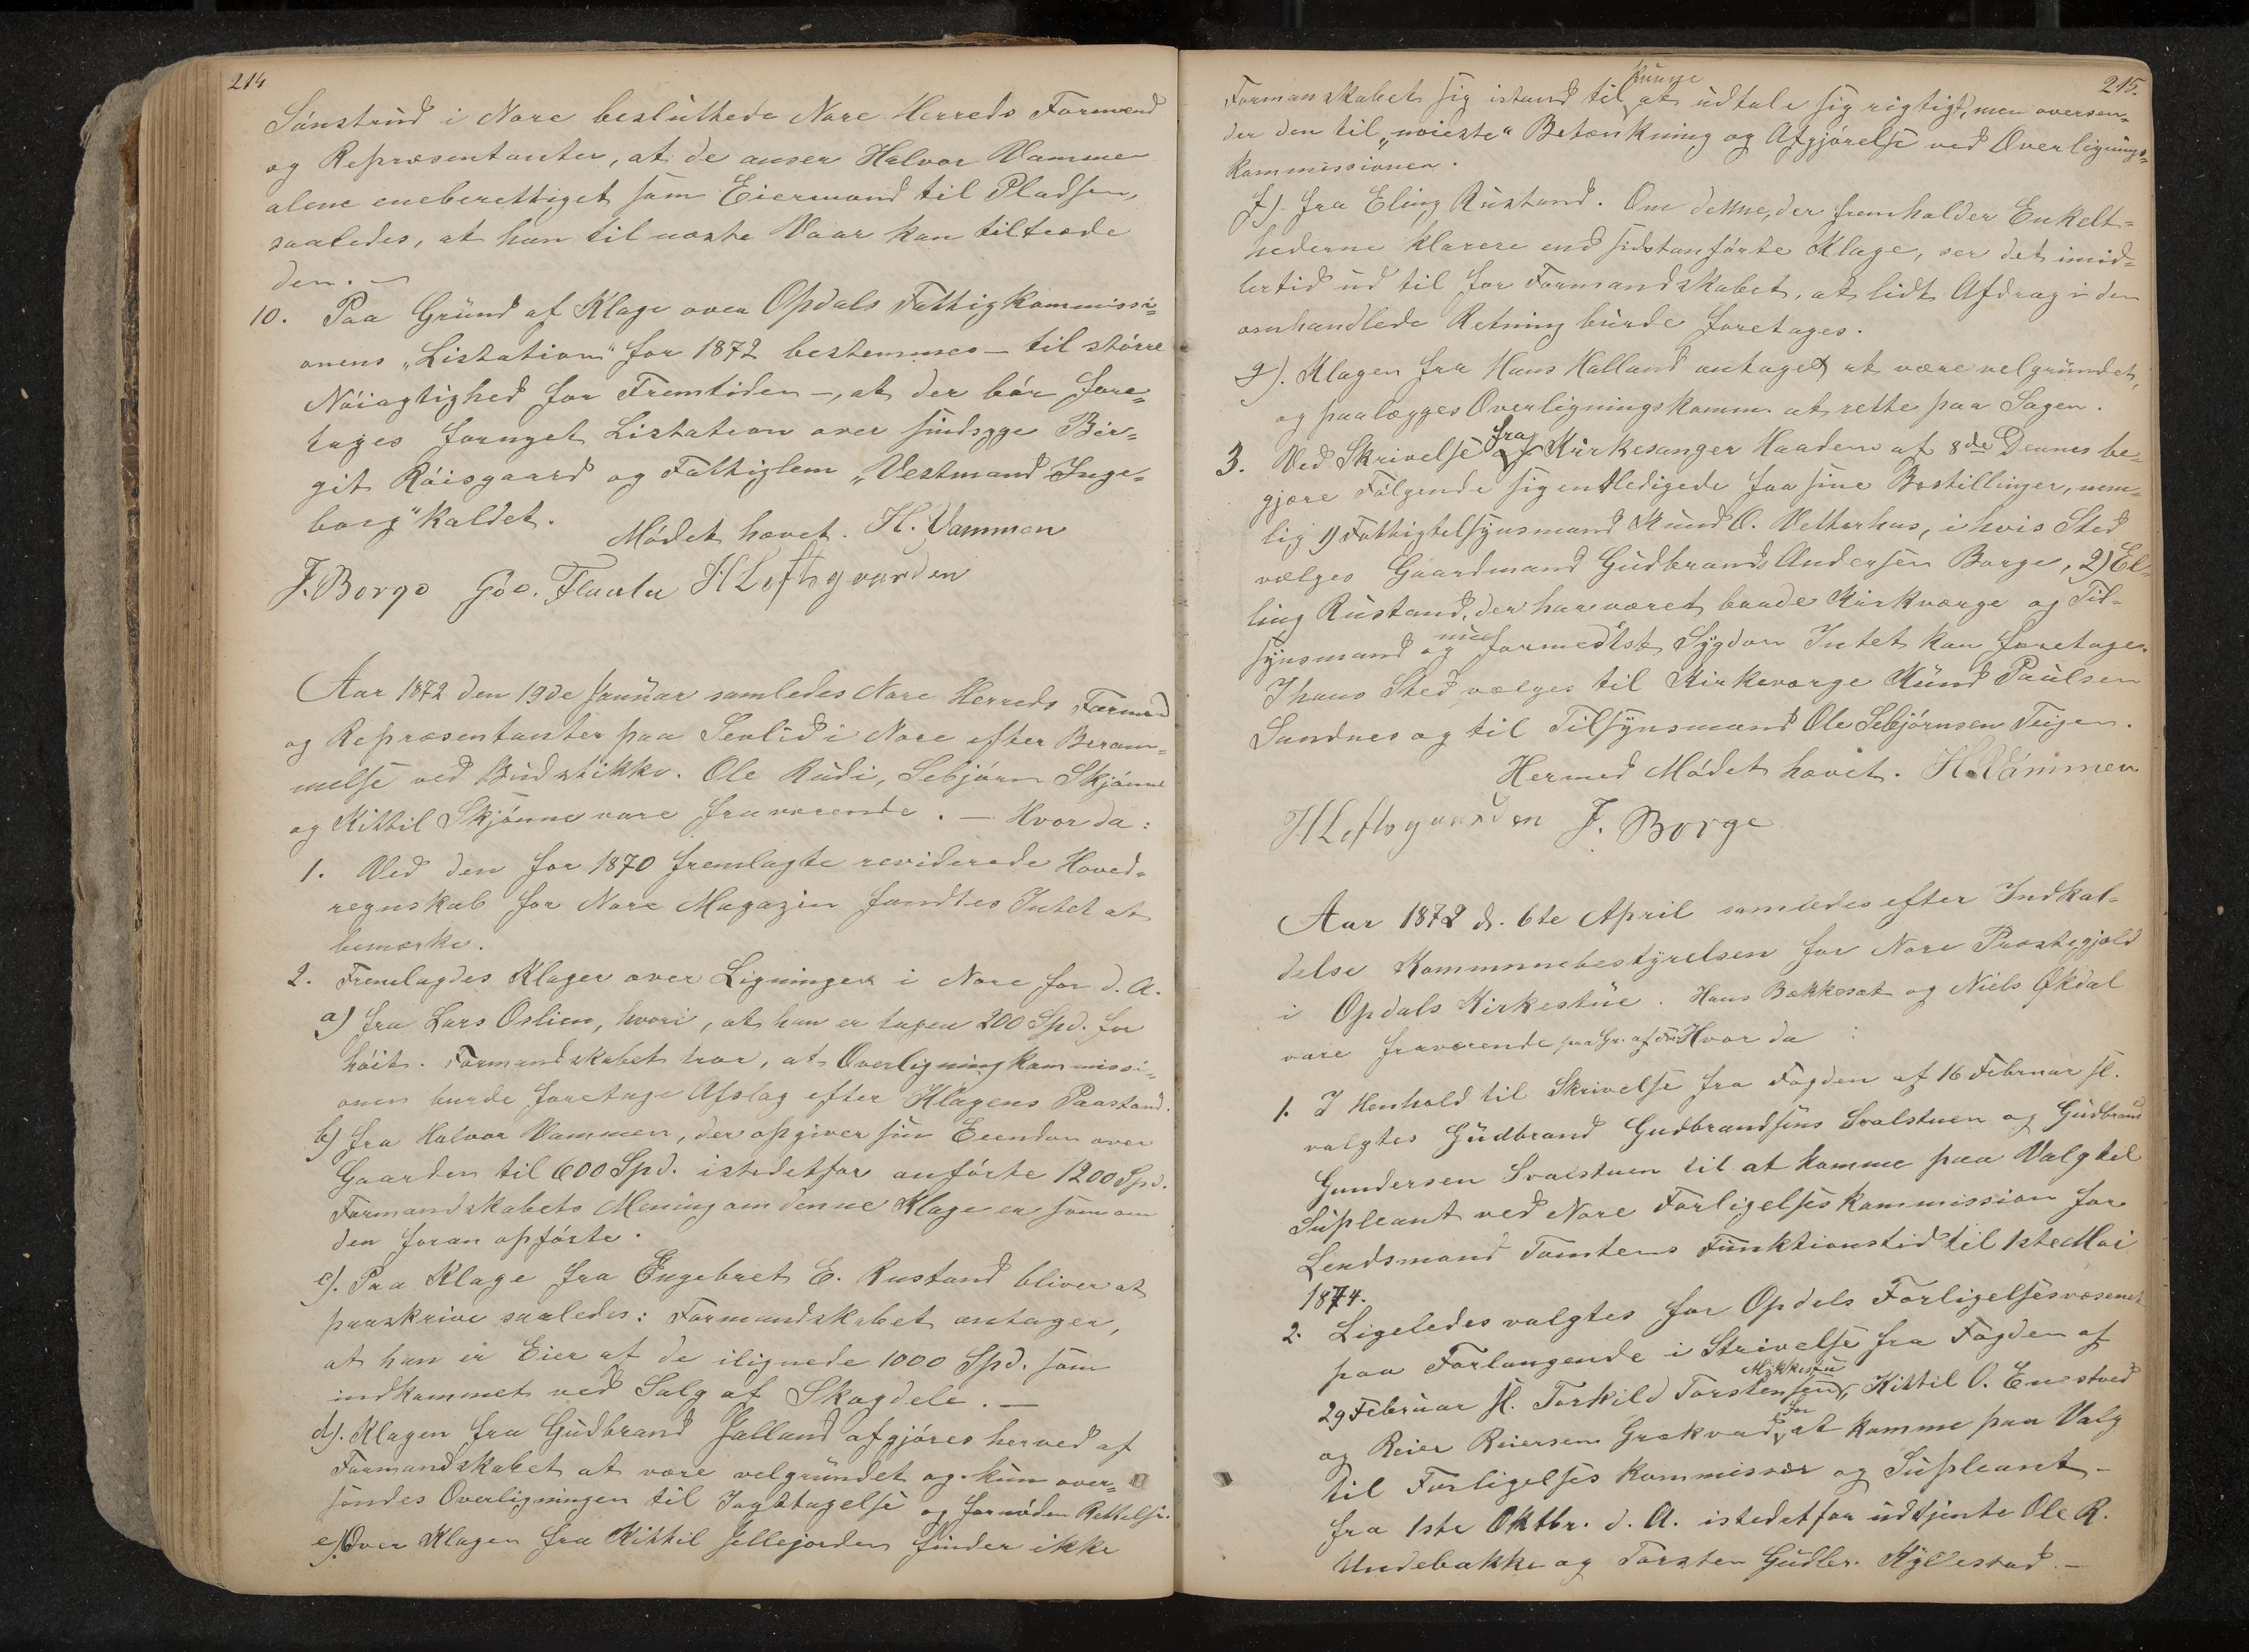 214
Sónstrud i Nore besluttede Nore Herreds Formænd
og Repræsentanter, at de anser Halvor Vammen
alene eneberettiget som Eiermand til Pladsen,
saaledes, at han til næste Vaar kan tiltræde
den. —
10. Paa Grund af Klage over Opdals Fattigkommissi=
onens „Listation" for 1872 bestemmes — til större
Nóiagtighed for Fremtiden —, at der bör fore=
tages fornyet Listation over sindsyge Bir=
git Róisgaard og Fattiglem „Vestmand Inge=
borg" kaldet.
Módet hævet. H. Vammen
F. Borge G. O. Flaata H Loftsgaarden
Aar 1872 den 19de Januar samledes Nore Herreds Formænd
og Repræsentanter paa Sevlid i Nore efter Beram=
melse ved Budstikke. Ole Rudi, Sebjórn Skjónne
og Kittil Skjónne vare fraværende. — Hvor da:
1. Ved den for 1870 fremlagte reviderede Hoved=
regnskab for Nore Magazin fandtes Intet at
bemærke.
2. Fremlagdes Klager over Ligningen i Nore for d. A.
a) fra Lars Oslien, hvori, at han er tagen 200 Spd. for
höit. Formandskabet tror, at Overligningkommissi=
onen burde foretage Afslag efter Klagens Paastand.
b) fra Halvor Vammen, der opgiver sin Eiendom over
Gaarden til 600 Spd. istedetfor anförte 1200 Spd.
Formandskabets Mening om denne Klage er som om
den foran opförte.
c). Paa Klage fra Engebret E. Rustand bliver at
paaskrive saaledes: Formandskabet antager,
at han er Eier af de ilignede 1000 Spd. som
indkommet ved Salg af Skogdele. —
d). Klagen fra Gudbrand Jalland afgjöres herved af
Formandskabet at være velgrundet og kun over=
sendes Overligningen til Iagttagelse og fornöden Rettelse.
e). Over Klagen fra Kittil Jellejorden finder ikke
215.
kunne
Formanskabet sig istand til at udtale sig rigtigt, men oversen=
der den til „nöieste" Betænkning og Afgjörelse ved Overlignings=
kommissionen.
f). fra Eling Rustand. Om denne, der fremholder Enkelt=
hederne klarere end sidstanförte Klage, ser det imid=
lertid ud til for Formandskabet, at lidt Afdrag i den
omhandlede Retning burde foretages.
g). Klagen fra Hans Halland antages at være velgrundet,
og paalægges Overligningskomm. at rette paa Sagen.
fra
3. Ved Skrivelse af Kirkesanger Haadem af 8de Dennes be=
gjære Fölgende sig entledigede fra sine Bestillinger, nem=
lig 1) Fattigtilsynsmand Knud O. Vetterhus, i hvis Sted
vælges Gaardmand Gudbrand Andersen Borge, 2) El=
ling Rustand, der har været baade Kirkværge og Til=
nu
synsmand og formedelst Sygdom Intet kan foretage.
I hans Sted vælges til Kirkeværge Knud Paulsen
Sandnes og til Tilsynsmand Ole Sebjórnsen Teigen.
Hermed Módet hævet. H. Vammen
H Loftsgaarden F. Borge
Aar 1872 d. 6te April samledes efter Indkal=
delse Kommunebestyrelsen for Nore Præstegjæld
i Opdals Kirkestue. Hans Bakkesæt og Niels Ökdal
vare fraværende paa Gr. af Hvor da :
1. I Henhold til Skrivelse fra Fogden af 16 Februar sl.
valgtes Gudbrand Gudbrandsens Svalstuen og Gudbrand
Gundersen Svalstuen til at komme paa Valg til
Supleant ved Nore Forligelseskommission for
Lendsmand Tomtens Funktionstid til 1ste Mai
1874.
2. Ligeledes valgtes for Opdals Forligelsesvæsenet
paa Forlangende i Skrivelse fra Fogden af
Mykkestu
29 Februar sl. Torkild Torstensen, Kittil O. Enestved
for
og Reier Reiersen Grækvad at komme paa Valg
til Forligelseskommissær og Supleant —
fra 1ste Oktbr. d. A. istedetfor udtjente Ole R.
Undebakke og Torsten Gudbr. Kyllestad. —